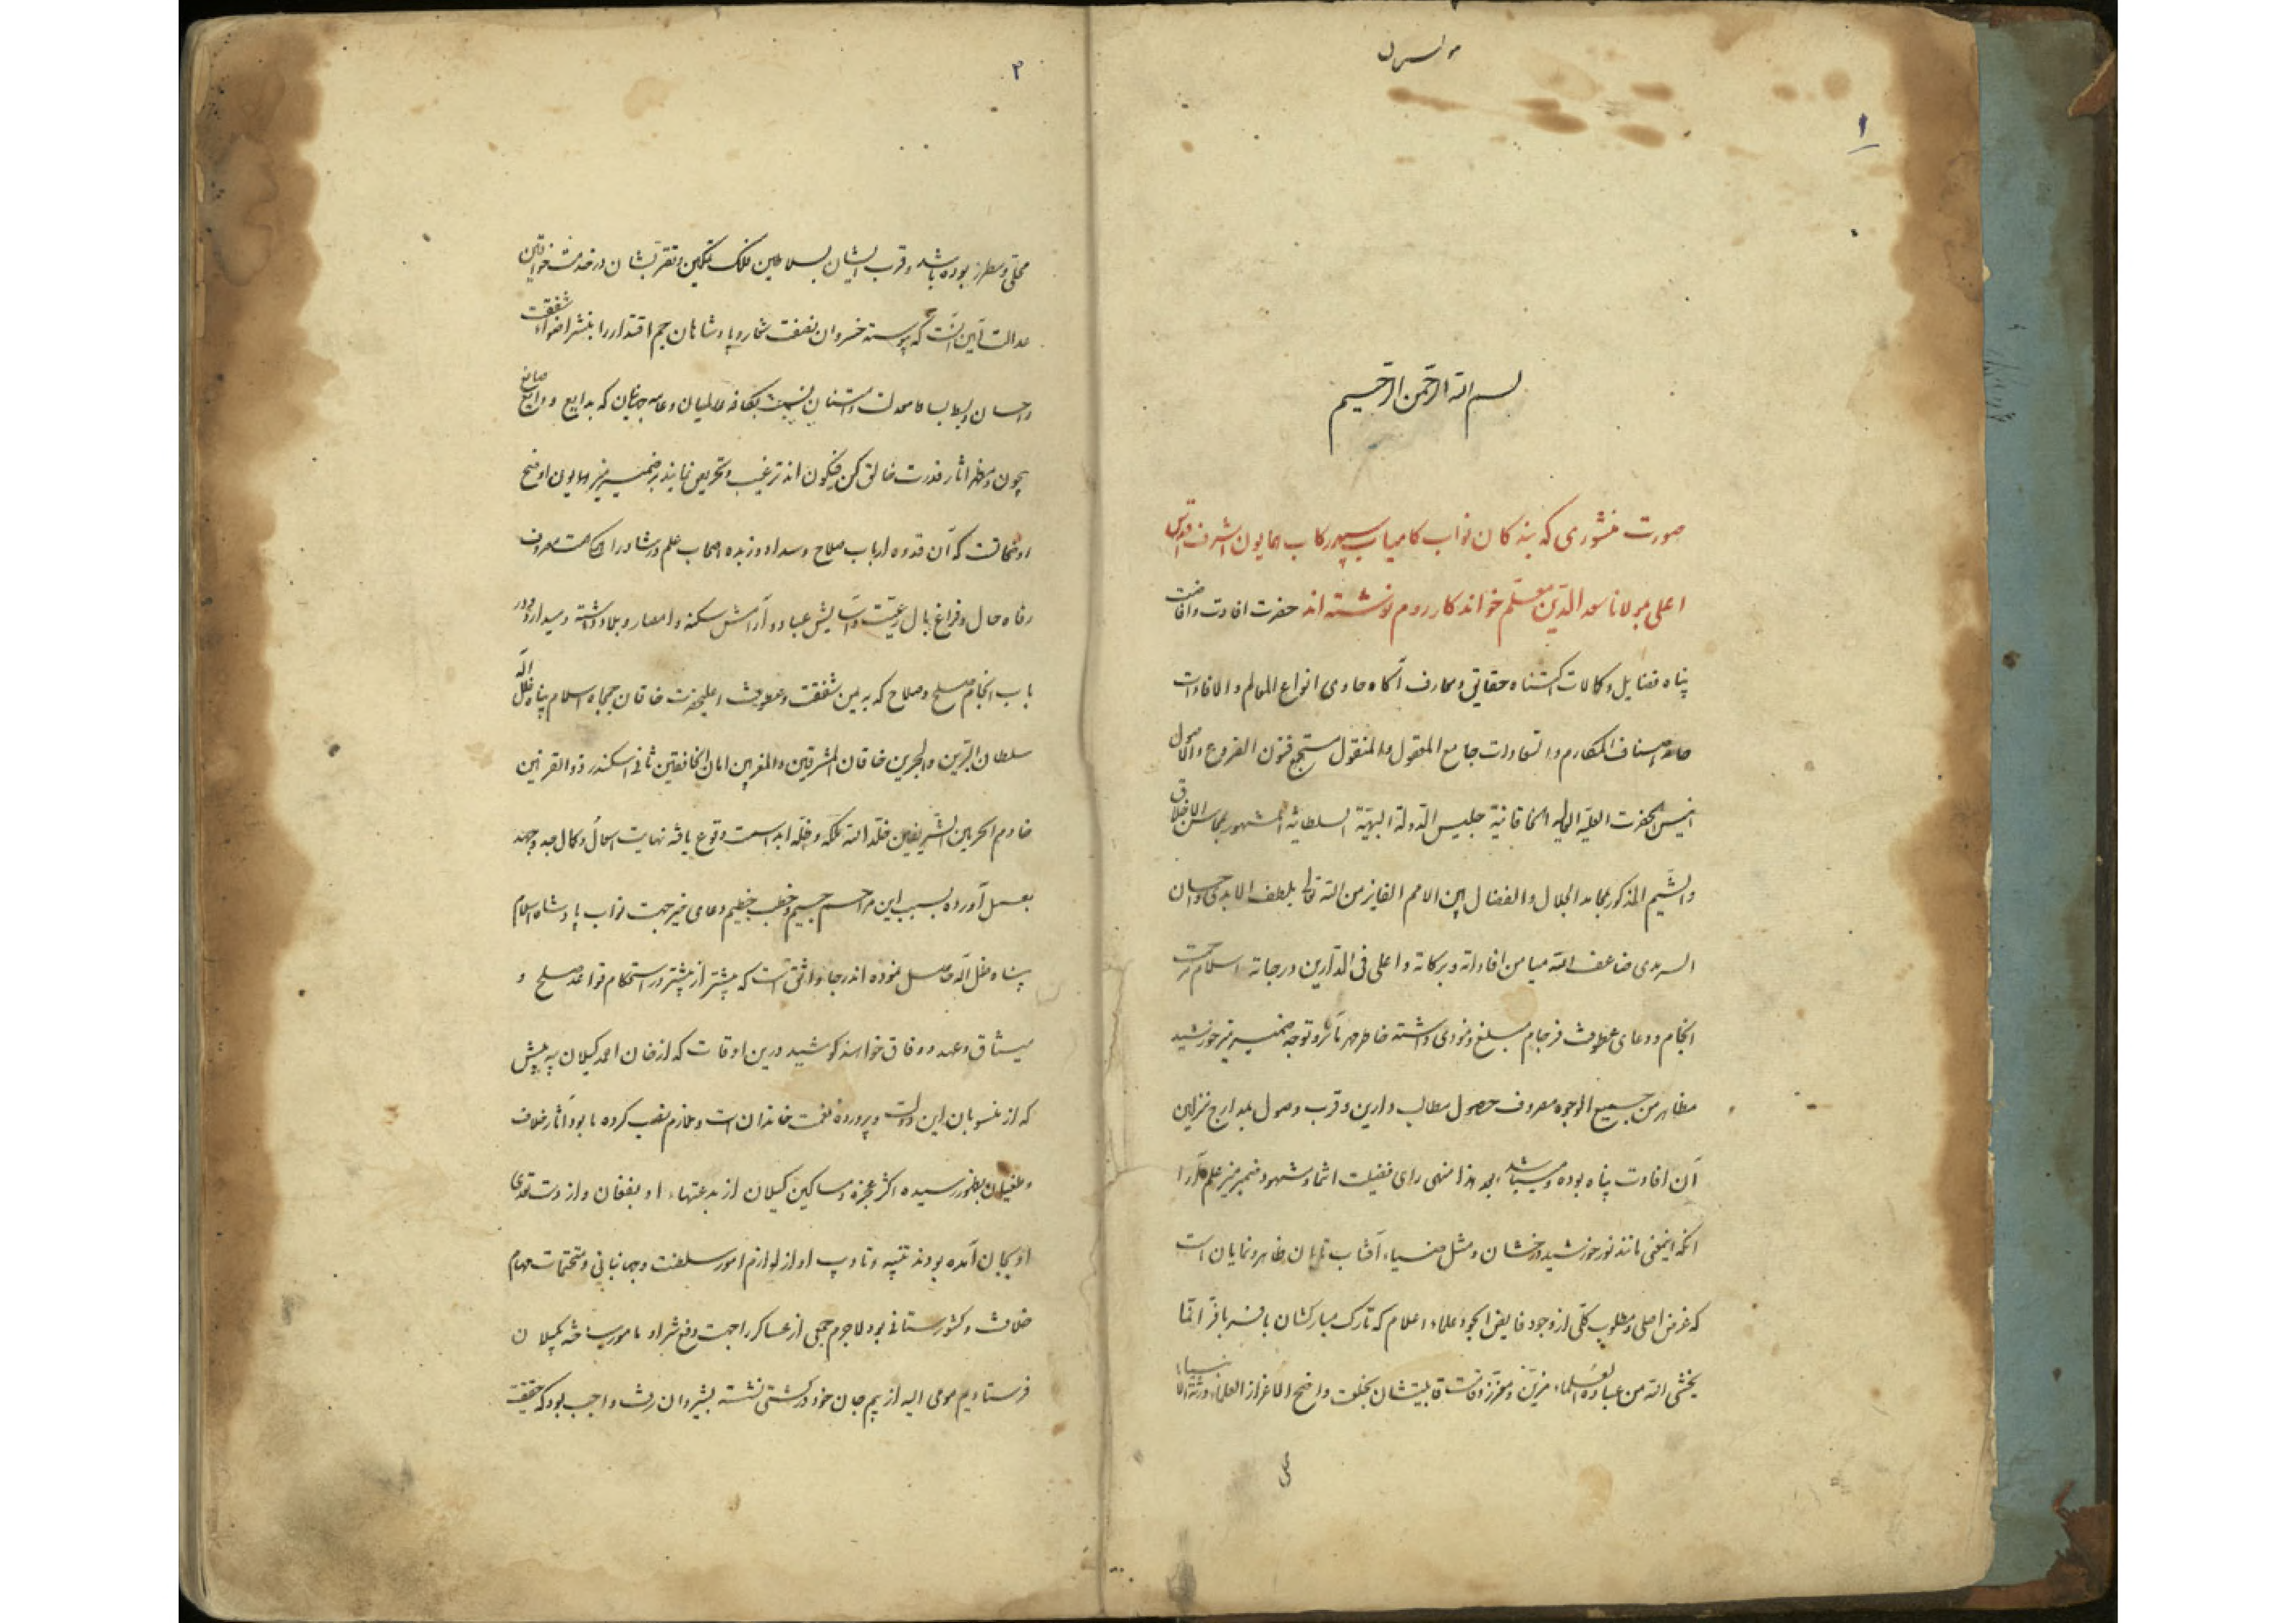 ۱
بسم الله الرحمن الرحیم
صورت منشوری که بندکان نواب کامیاب سپهر رکاب همایون اشرف اقدس
اعلی بمولانا سعد الدین معلّم خواندکار روم نوشته اند حضرت افادت وافاضت
پناه فضایل وکمالات اکتناه حقایق ومعارف آکاه حاوی انواع المعالم والافادات
اصناف المکارم والسعادات جامع المعقول والمنقول مستجمع فنون الفروع والاصول
انیس الحضرت العلیّه العالیه الخاقانیة جلیس الدولة البهیّة السلطانیه المشهور بمحاسن الاخلاق
والشیم المذکور بمحامد الجلال والفضال بین الامم الفایز من الله تعالی بلطف الابدی واحسان
السرمدی ضاعف الله میامن افاداته وبرکاته واعلی فی الدارین درجاته اسلام
انجام ودعای عطوفت فرجام مبلغ ومؤدی داشته خاطر مهر تآثر وتوجه ضمیر منیر خورشید
مظاهر من جمیع الوجوه مصروف حصول مطالب دارین وقرب وصول بمدارج منزلین
آن افادت پناه بوده ومیباشد بعد هذا منهی رای فضیلت انتما ومشهود ضمیر منیر علم آرا
آنکه اینمعنی مانند نور خورشید درخشان ومثل ضیاء آفتاب تابان ظاهر ونمایان است
که غرض اصلی ومطلوب کلّی از وجود فایض الجود علماء اعلام که تارک مبارکشان بافسر بافرّ انّما
یخشی الله من عباده العلماء مزیّن ومعزّز وقامت قابلیتشان بخلعت واضح الاعزاز العلماء ورثة الانبیاء
۲
محلّی ومطرز بوده باشد وقرب ایشان بسلاطین فلک تمکین وتقرّبشان در خدمت خواقین
عدالت آیین آنست که پیوسته خسروان نصفت شعار وپادشاهان جم اقتدار را بنشر اضواء شفقت
واحسان وبسط بساط معدلت وامتنان نسبت بکافه عالمیان وعامه جهانیان که بدایع ودایع صانع
بیچون ومظهر اثار قدرت خالق کن فیکون اند ترغیب وتحریص نمایند بر ضمیر منیر همایون اوضح
است که آن قدوه ارباب صلاح وسداد وزبده اصحاب علم ورشاد را همکی همت مصروف
رفاه حال وفراغ بال رعیّت وآسایش عباد وآرامش سکنه وامصار وبلاد داشته ومیدارد ودر
باب انجام صلح وصلاح که به یمن شفقت وعطوفت اعلیحضرت خاقان جمجاه اسلام پناه ظل اله
سلطان البرّین والبحرین خاقان المشرقین والمغربین امان الخافقین ثانی اسکندر ذو القرنین
خادم الحرمین الشریفین خلّد الله ملکه وظلّه ابدا سمت وقوع یافته نهایت وکمال جدّ وجهد
بعمل آورده بسبب این مراسم جسیم وخطب عظیم دعای خیر جهت نواب پادشاه اسلام
پناه ظل اله حاصل نموده اند رجا واثق است که بیشتر از پیشتر در استحکام قواعد صلح و
میثاق وعهد ووفاق خواهند کوشید درین اوقات که از خان احمد کیلان به پیش
که از منسوبان این دولت وپرورده نعمت خاندان است وملازم نصب کرده ما بود آثار خلاف
وطغیان بظهور رسیده اکثر عجزه ومساکین کیلان از بدعتهاء او بفغان واز دست تعدّی
او بجان آمده بودند تنبیه وتادیب او از لوازم امور سلطنت وجهانبانی ومتحتمات مهام
خلافت وکشورستانی بود لاجرم جمعی از عساکر را جهت دفع شر او مامور ساخته بکیلان
فرستادیم مومی الیه از بیم جان خود در کشتی نشسته بشیروان رفت واجب بود که حقیقت